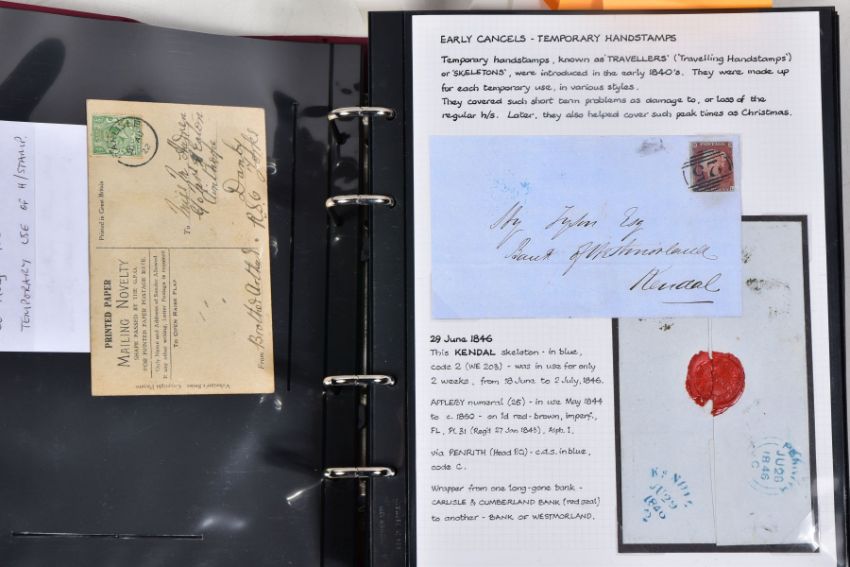 TEMPORARY USE OF H/STAMP.
PRINTED PAPER
MAILING NOVELTY
SHAPE PASSED BY THE G.P.O.
FOR PRINTED PAPER POSTAGE RATE.
Only Name and Address of Sender Allowed.
If any other writing, Letter Postage is required
TO OPEN RAISE FLAP
Printed in Great Britain
To
Danby
From Brother Arthur.
EARLY CANCELS - TEMPORARY HANDSTAMPS
Temporary handstamps, known as 'TRAVELLERS' ('Travelling Handstamps')
or 'SKELETONS', were introduced in the early 1840's. They were made up
for each temporary use, in various styles.
They covered such short term problems as damage to, or loss of the
regular h/s. Later, they also helped cover such peak times as Christmas.
POSTAGE
25
Tyson Esq
Bank of Westmorland
Kendal
29 June 1846
This KENDAL skeleton - in blue,
code 2 (WE 203) - was in use for only
2 weeks, from 18 June to 2 July, 1846.
APPLEBY numeral (25) - in use May 1844
to c. 1860 - on 1d red-brown, imperf.,
FL, Pl. 31 (Regd 27 Jan 1843), Alph. I.
via PENRITH (Head P.O.) - c.d.s. in blue,
code C.
Wrapper from one long-gone bank -
CARLISLE & CUMBERLAND BANK (red seal)
to another - BANK OF WESTMORLAND.
PENRITH
JU29
1846
C
KENDAL
JU29
1846
2